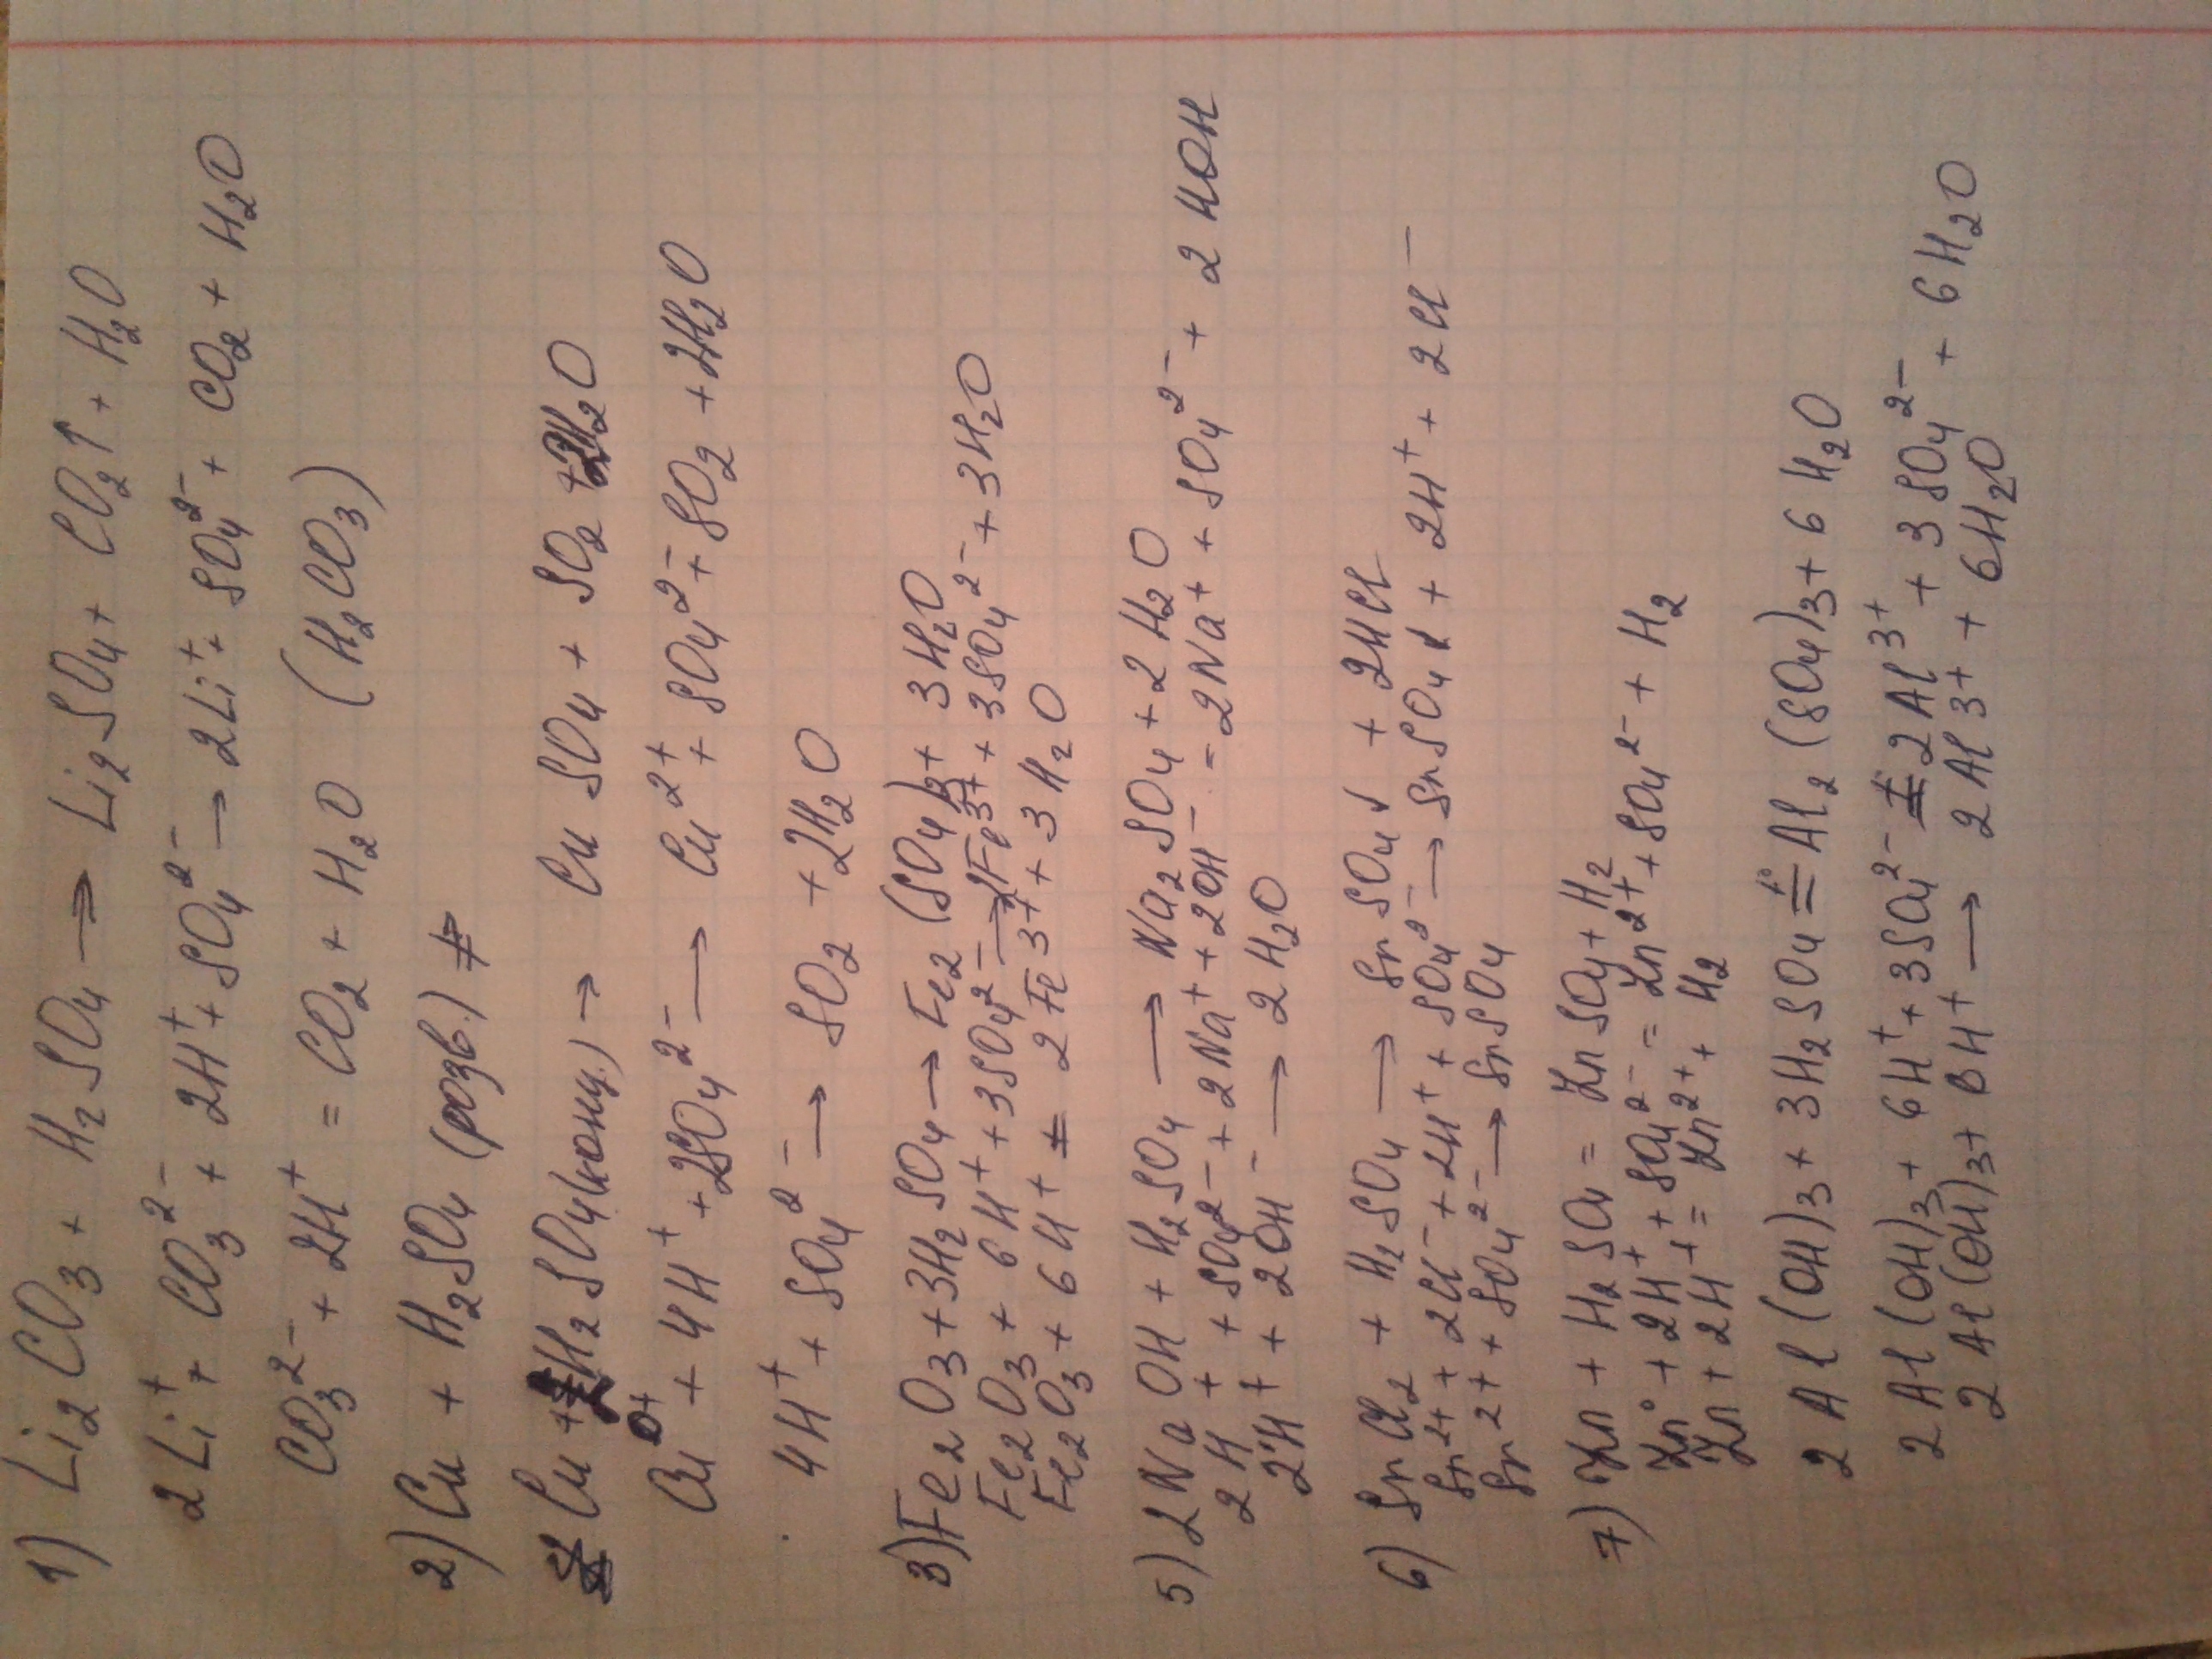 1) Li₂CO₃ + H₂SO₄ → Li₂SO₄ + CO₂↑ + H₂O
2Li⁺ + CO₃²⁻ + 2H⁺ + SO₄²⁻ → 2Li⁺ + SO₄²⁻ + CO₂ + H₂O
CO₃²⁻ + 2H⁺ = CO₂ + H₂O (H₂CO₃)
2) Cu + H₂SO₄ (розв.) ≠
Cu + 2H₂SO₄(конц.) → CuSO₄ + SO₂ + 2H₂O
Cu⁰ + 4H⁺ + 2SO₄²⁻ → Cu²⁺ + SO₄²⁻ + SO₂ + 2H₂O
4H⁺ + SO₄²⁻ → SO₂ + 2H₂O
3) Fe₂O₃ + 3H₂SO₄ → Fe₂(SO₄)₃ + 3H₂O
Fe₂O₃ + 6H⁺ + 3SO₄²⁻ → 2Fe³⁺ + 3SO₄²⁻ + 3H₂O
Fe₂O₃ + 6H⁺ = 2Fe³⁺ + 3H₂O
5) 2NaOH + H₂SO₄ → Na₂SO₄ + 2H₂O
2H⁺ + SO₄²⁻ + 2Na⁺ + 2OH⁻ = 2Na⁺ + SO₄²⁻ + 2HOH
2H⁺ + 2OH⁻ → 2H₂O
6) SrCl₂ + H₂SO₄ → SrSO₄↓ + 2HCl
Sr²⁺ + 2Cl⁻ + 2H⁺ + SO₄²⁻ → SrSO₄↓ + 2H⁺ + 2Cl⁻
Sr²⁺ + SO₄²⁻ → SrSO₄
7) Zn + H₂SO₄ = ZnSO₄ + H₂
Zn⁰ + 2H⁺ + SO₄²⁻ = Zn²⁺ + SO₄²⁻ + H₂
Zn + 2H⁺ = Zn²⁺ + H₂
2Al(OH)₃ + 3H₂SO₄ = Al₂(SO₄)₃ + 6H₂O
2Al(OH)₃ + 6H⁺ + 3SO₄²⁻ = 2Al³⁺ + 3SO₄²⁻ + 6H₂O
2Al(OH)₃ + 6H⁺ → 2Al³⁺ + 6H₂O